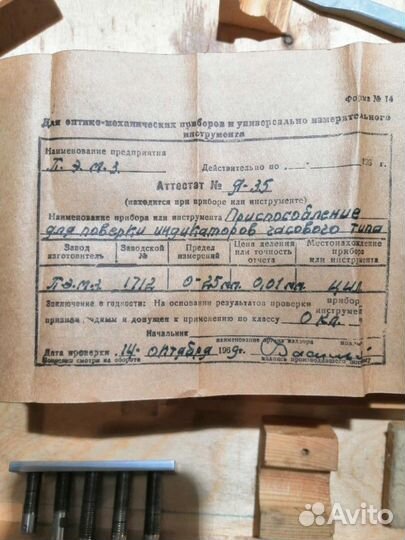 Форма № 14
Для оптико-механических приборов и универсально измерительного
инструмента
Наименование предприятия
П.Э.М.З. Действительно по 196 г.
Аттестат № Я-35
(находится при приборе или инструменте)
Наименование прибора или инструмента Приспособление
для поверки индикаторов часового типа
Завод изготовитель Заводской № Предел измерений Цена деления или точность отсчета Местонахождение прибора или инструмента
П.Э.М.З. 1712 0-25 мм. 0,01 мм.
Заключение о годности: На основании результатов проверки прибор
инструмент
признан годным и допущен к применению по классу
Начальник
наименование органа надзора
Дата проверки 14 октября 1969г.
Поверхки смотри на обороте подпись производившего
Avito